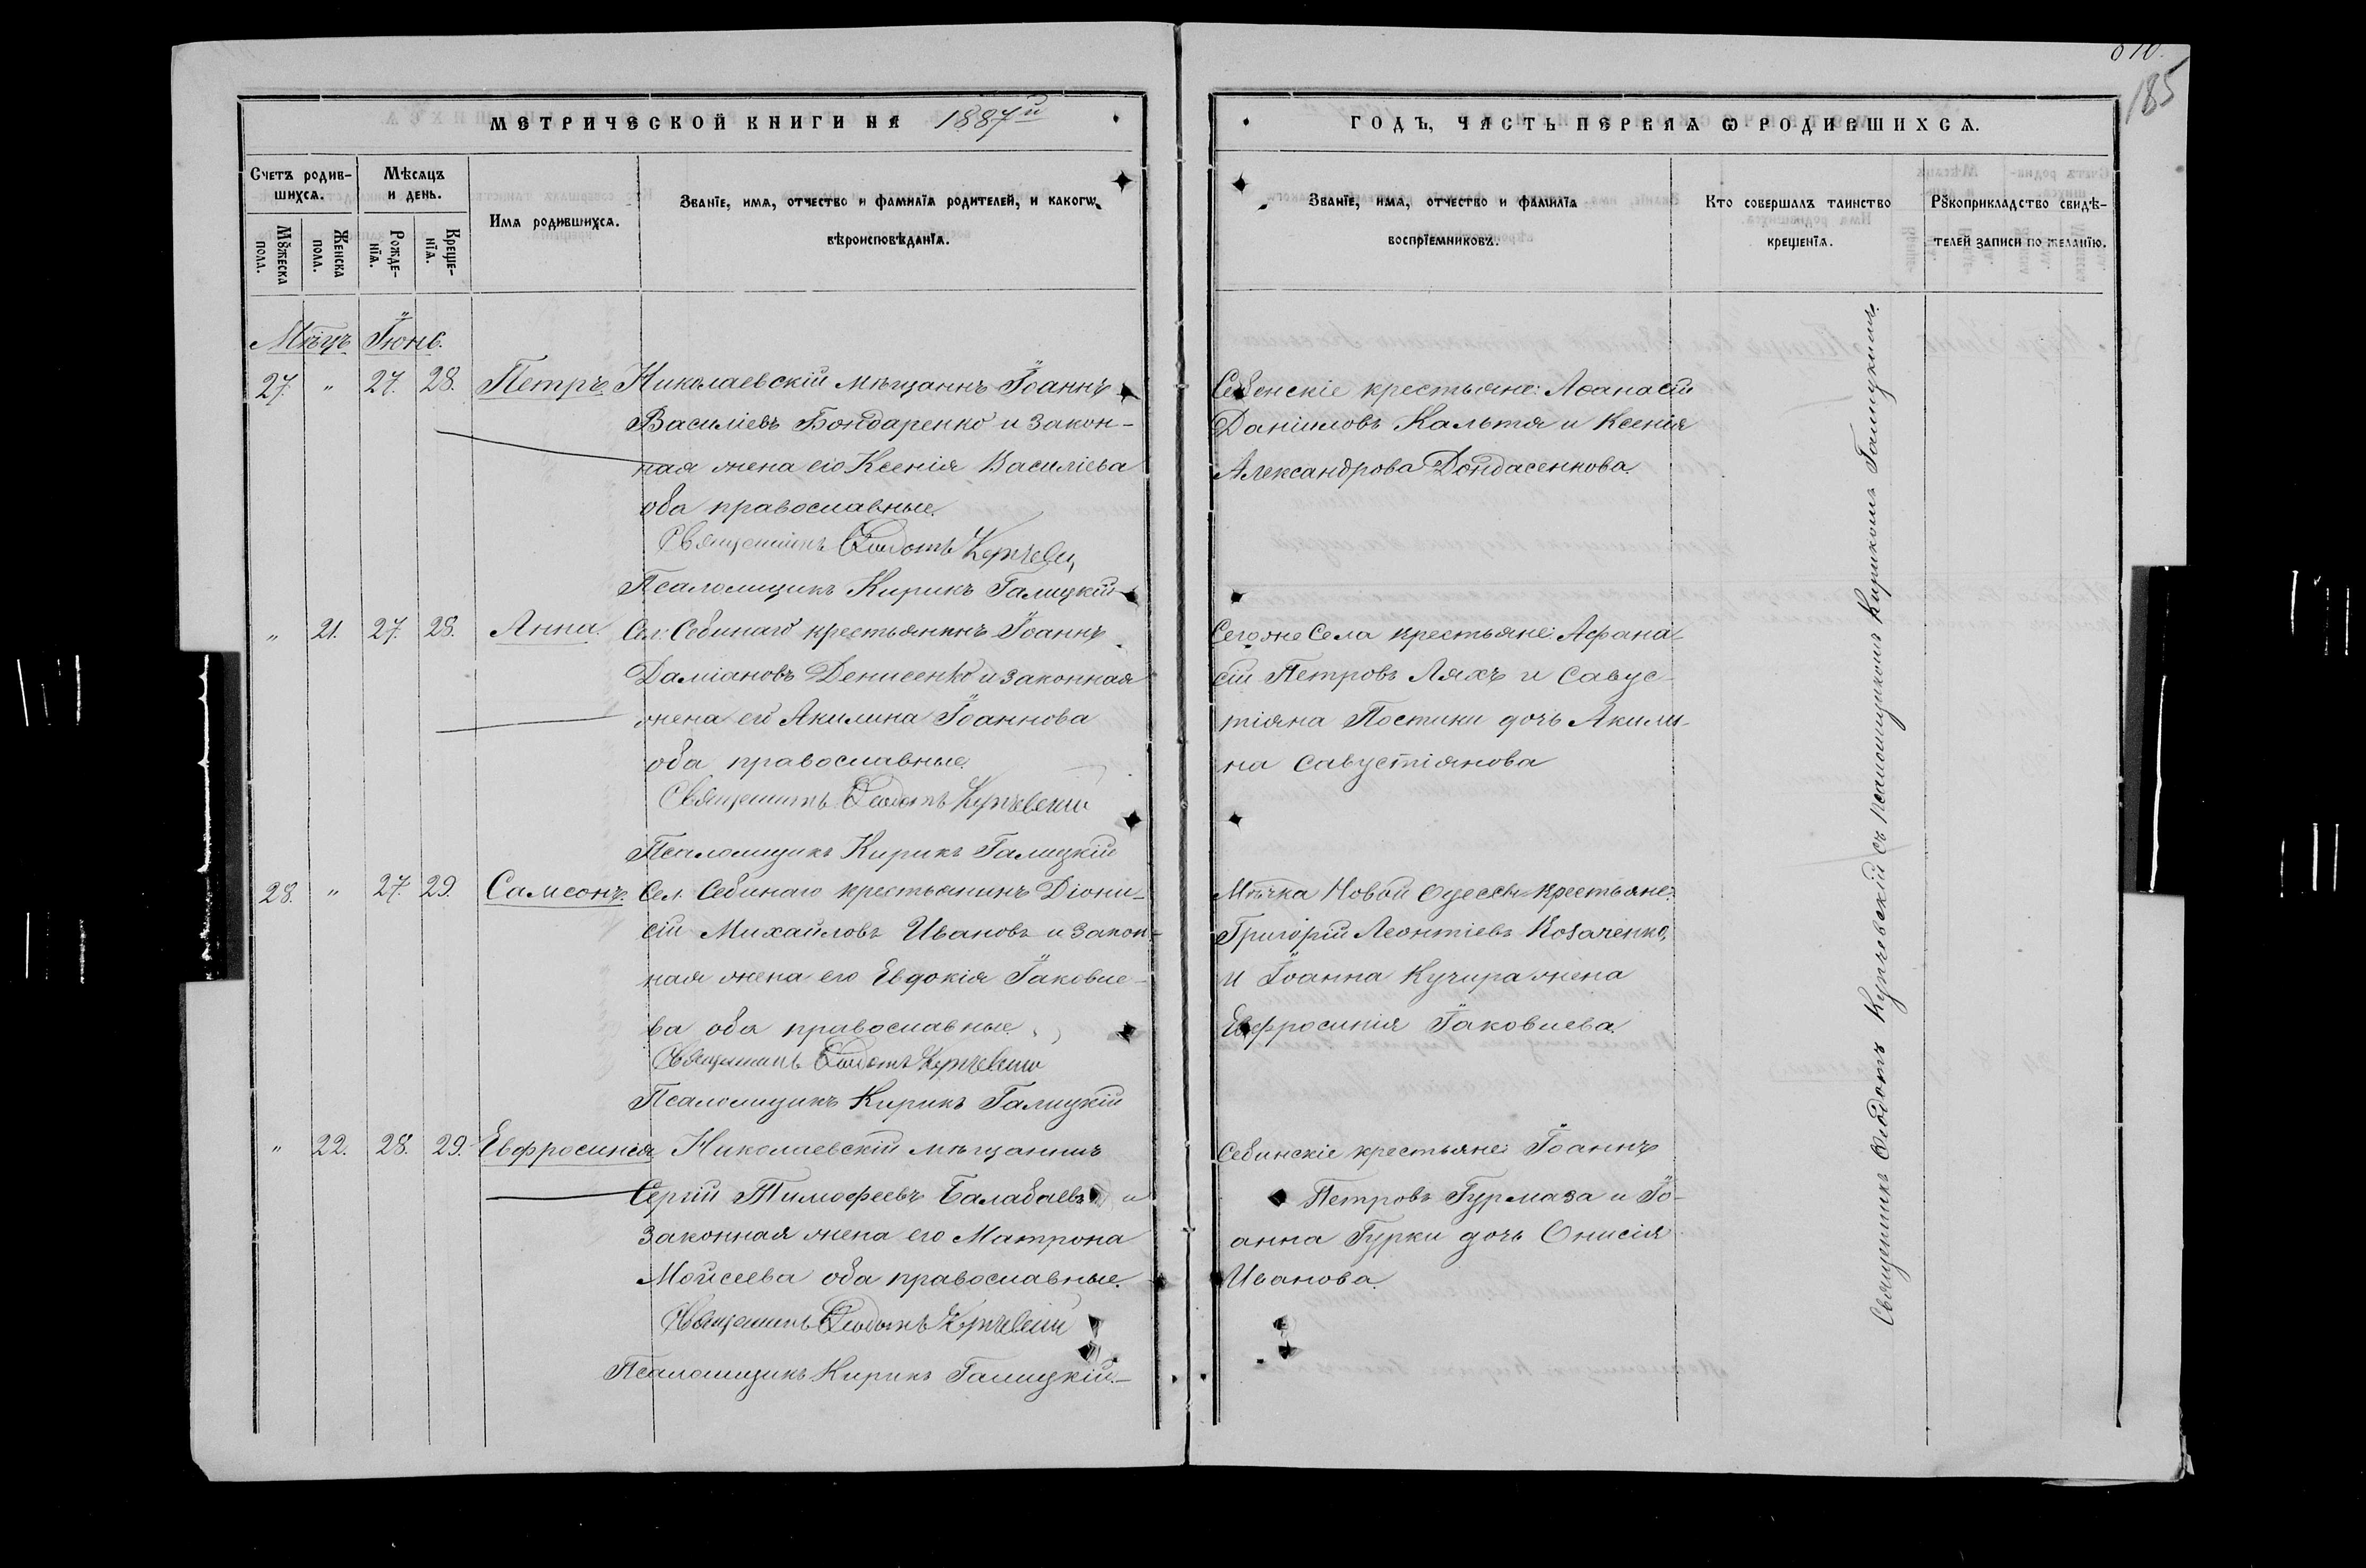 185
МЕТРИЧЕСКОЙ КНИГИ НА 1887й
ГОДЪ, ЧАСТЬ ПЕРВАЯ Ѡ РОДИВШИХСЯ.
Счетъ родив-
шихся.
Мѣсяцъ
и день.
Имя родившихся.
Званїе, имя, отчество и фамилїя родителей, и какогѡ
вѣроисповѣданїя.
Мꙋжеска
пола.
Женска
пола.
Рожде-
нїя.
Креще-
нїя.
Званїе, имя, отчество и фамилїя
воспрїемниковъ.
Кто совершалъ таинство
крещенїя.
Рꙋкоприкладство свидѣ-
телей записи по желанїю.
Мѣцъ Іюнь.
27. " 27. 28. Петръ Николаевскій мѣщанинъ Іоаннъ
Василіевъ Бондаренко и закон-
ная жена его Ксенія Василіева
оба православные.
Священникъ Ѳеодотъ
Псаломщикъ Кирикъ Галицкій
Себенскіе крестьяне: Аѳанасій
Даніиловъ Кальтя и Ксенія
Александрова Дондасенкова.
" 21. 27. 28. Анна. Сел: Себинаго крестьянинъ Іоаннъ
Даміановъ Денисенко и законная
жена его Акилина Іоаннова
оба православные.
Священникъ Ѳеодотъ Купчевскій
Псаломщикъ Кирикъ Галицкій
Сегоже Села крестьяне: Афана-
сій Петровъ Ляхъ и Савус-
тіяна Постики дочь Акили-
на Савустіянова
28. " 27. 29. Самсонъ. Сел. Себинаго крестьянинъ Діони-
сій Михайловъ Ивановъ и закон-
ная жена его Евдокія Іаковле-
ва оба православные.
Священникъ Ѳеодотъ Купчевскій
Псаломщикъ Кирикъ Галицкій
Мѣчка Новой Одессы крестьяне:
Григорій Леонтіевъ Козаченко,
и Іоанна Кучира жена
Евфросинія Іаковлева.
" 22. 28. 29. Евфросинія Николаевскій мѣщанинъ
Сергій Тимофеевъ Балабаевъ и
законная жена его Матрона
Мойсеева оба православные.
Священникъ Ѳеодотъ Купчевскій
Псаломщикъ Кирикъ Галицкій.
Себинскіе крестьяне: Іоаннъ
Петровъ Гурмаза и Іо-
анна Гурки дочь Онисія
Иванова.
Священникъ Ѳеодотъ Купчевскій съ псаломщикомъ Кирикомъ Галицкимъ.